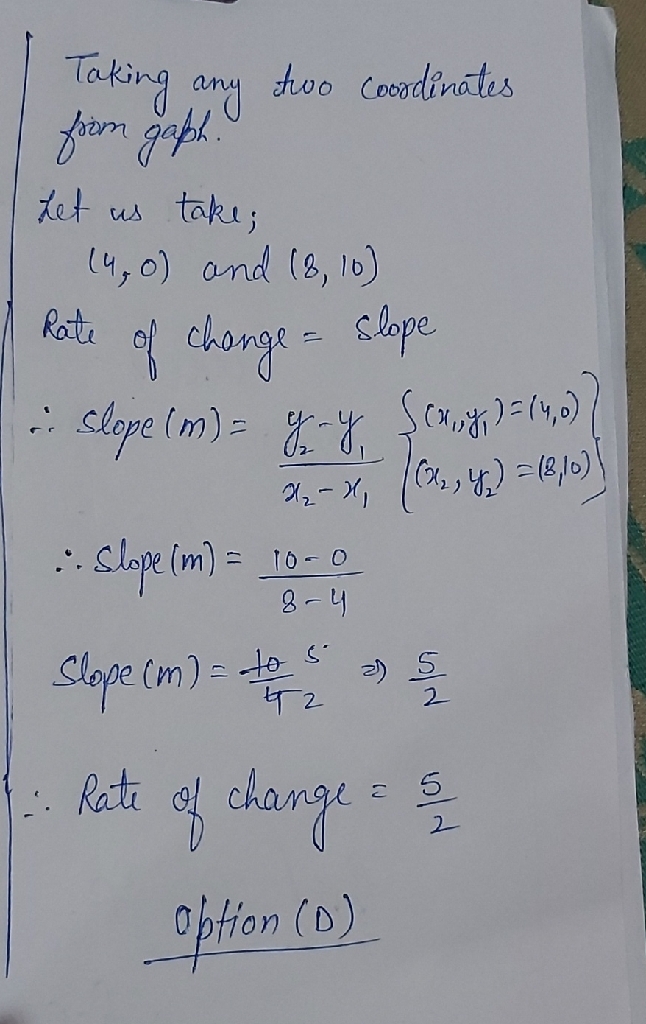 Taking any two coordinates
from gaph.
Let us take;
(4,0) and (8,10)
Rate of change = Slope
∴ Slope (m) = y₂-y₁ / x₂-x₁ {(x₁,y₁)=(4,0) (x₂,y₂)=(8,10)}
∴ Slope (m) = 10-0 / 8-4
Slope (m) = 10 5 / 4 2 ⇒ 5/2
∴ Rate of change = 5/2
option (D)